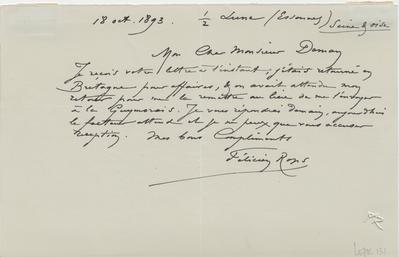 18 oct. 1893. 1/2 Lune (Essonnes) Seine & Oise
Mon Cher Monsieur Deman
Je reçois votre lettre à l'instant, j'étais retourné en
Bretagne pour affaires, & on avait attendu mon
retour pour me la remettre au lieu de me l'envoyer
à la . Je vous répondrai demain, aujourd'hui
le facteur attend & je ne peux que vous accuser
réception. Mes bons Compliments
Félicien Rops